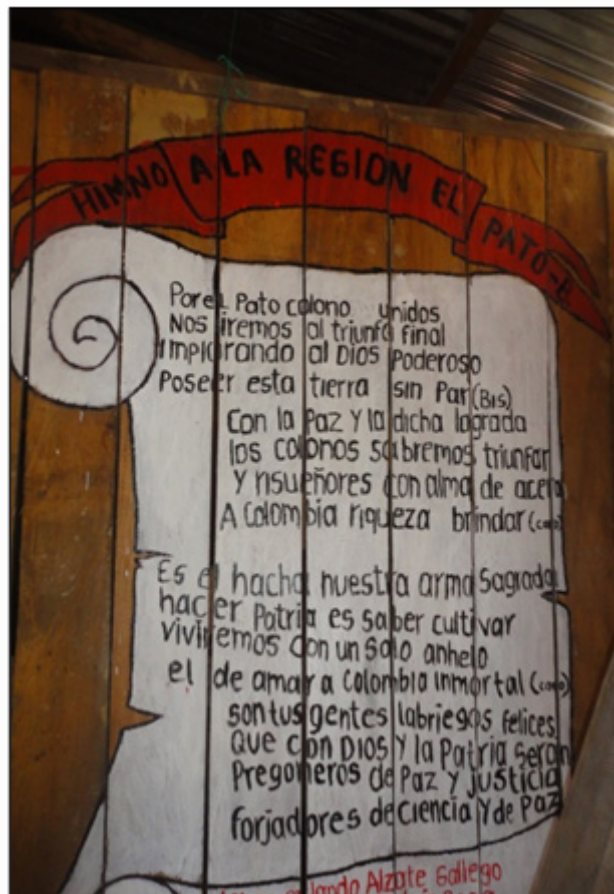 HIMNO A LA REGION EL PATO-B
Por el Pato colono unidos
Nos iremos al triunfo final
Implorando al Dios Poderoso
Poseer esta tierra sin Par (Bis)
Con la Paz y la dicha lograda
los colonos sabremos triunfar
Y risueñores con alma de acero
A Colombia riqueza brindar (coro)
Es el hacha nuestra arma sagrada
hacer Patria es saber cultivar
viviremos con un solo anhelo
el de amar a Colombia inmortal (coro)
son tus gentes labriegos felices
Que con Dios y la Patria serán
Pregoneros de Paz y justicia
forjadores de Ciencia y de Paz
Alzate Gallego